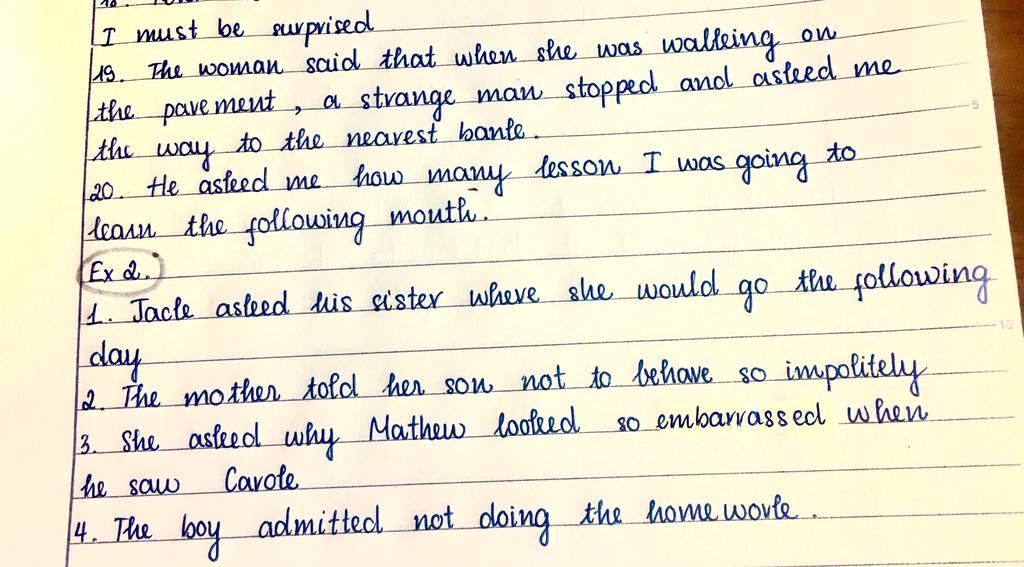 18.
I must be surprised
19. The woman said that when she was walking on
the pavement, a strange man stopped and asked me
the way to the nearest bank.
20. He asked me how many lesson I was going to
learn the following mouth.
Ex 2.
1. Jack asked his sister where she would go the following
day
2. The mother told her son not to behave so impolitely
3. She asked why Mathew looked so embarrassed when
he saw Carole
4. The boy admitted not doing the homework.
5
10